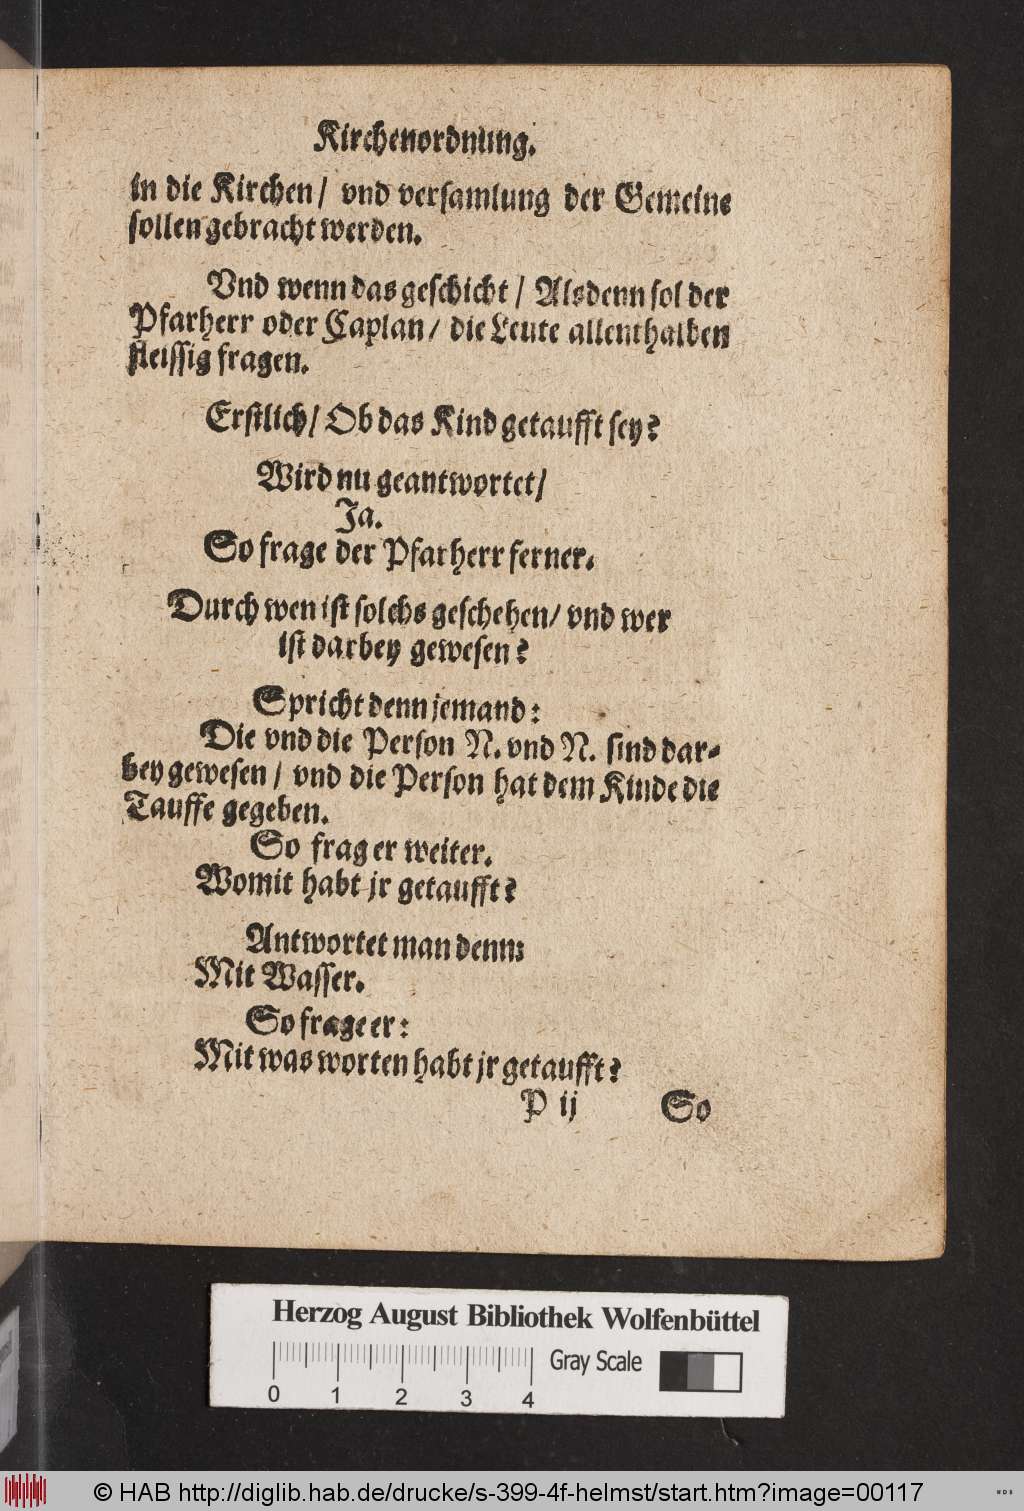 Kirchenordnung.
in die Kirchen/ vnd versamlung der Gemeine
sollen gebracht werden.
Vnd wenn das geschicht/ Alsdenn sol der
Pfarherr oder Caplan/ die Leute allenthalben
fleissig fragen.
Erstlich/ Ob das Kind getaufft sey?
Wird nu geantwortet/
Ja.
So frage der Pfarherr ferner.
Durch wen ist solchs geschehen/ vnd wer
ist darbey gewesen?
Spricht denn jemand:
Die vnd die Person N. vnd N. sind dar-
bey gewesen/ vnd die Person hat dem Kinde die
Tauffe gegeben.
So frag er weiter.
Womit habt jr getaufft?
Antwortet man denn:
Mit Wasser.
So frage er:
Mit was worten habt jr getaufft?
P ij So
Herzog August Bibliothek Wolfenbüttel
Gray Scale
0 1 2 3 4
© HAB http://diglib.hab.de/drucke/s-399-4f-helmst/start.htm?image=00117